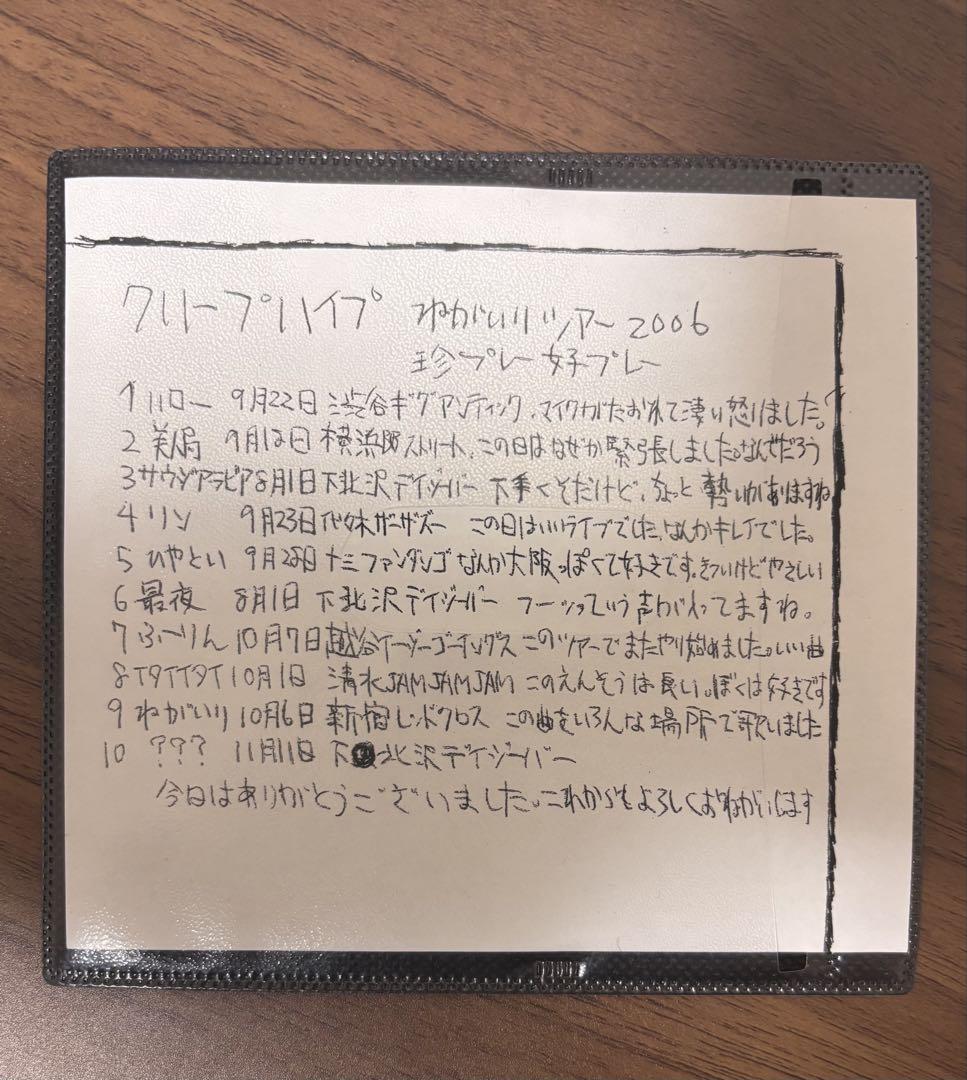 クリープハイプ ねがいりツアー 2006
珍プレー好プレー
1 ハロー 9月22日 渋谷ギグアンティック、マイクがたおれて凄い怒りました。
2 美人局 9月18日 横浜B.B.ストリート、この日はなぜか緊張しました。なんでだろう
3 サウジアラビア 8月1日 下北沢デイジーバー 下手くそだけど、ちょっと勢いがありますね
4 リン 9月23日 代々木ザーザズー この日はいいライブでした、なんかキレイでした。
5 ひやとい 9月28日 十三ファンダンゴ なんか大阪っぽくて好きです。きついけどやさしい
6 最夜 8月1日 下北沢デイジーバー フーッっていう声が入ってますね。
7 ふーりん 10月7日 越谷イージーゴーイングス このツアーでまたやり始めました。いい曲
8 イタイイタイ 10月1日 清水JAMJAMJAM このえんそうは長い。ぼくは好きです
9 ねがいり 10月6日 新宿レッドクロス この曲をいろんな場所で歌いました
10 ??? 11月11日 下北沢デイジーバー
今日はありがとうございました。これからもよろしくおねがいします